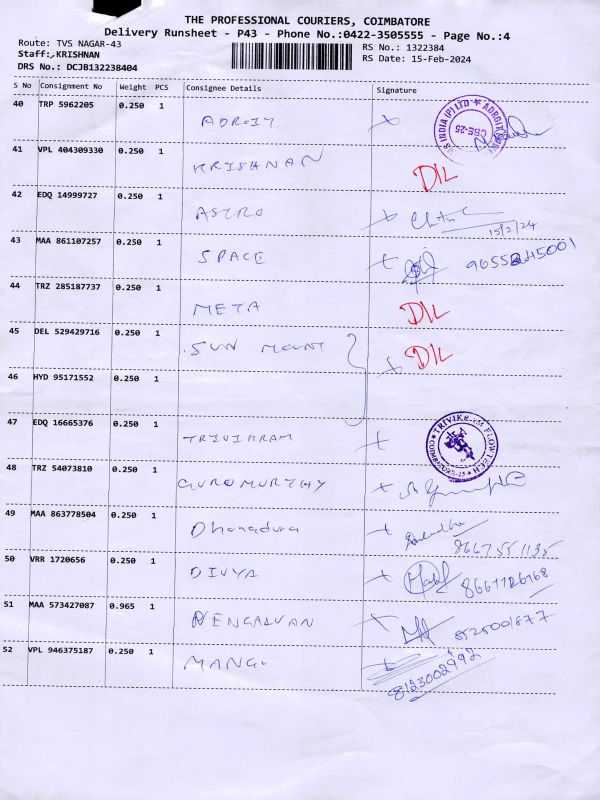 THE PROFESSIONAL COURIERS, COIMBATORE
Delivery Runsheet - P43 - Phone No.:0422-3505555 - Page No.:4
Route: TVS NAGAR-43
RS No.: 1322384
Staff:.KRISHNAN
RS Date: 15-Feb-2024
DRS No.: DCJB132238404
S No Consignment No Weight PCS Consignee Details Signature
40 TRP 5962205 0.250 1 ADROIT
S INDIA (P) LTD ★ ADROIT
CBE-25
41 VPL 404309330 0.250 1 KRISHNAN DIL
42 EDQ 14999727 0.250 1 ASTRO
15/2/24
43 MAA 861107257 0.250 1 SPACE
44 TRZ 285187737 0.250 1 META DIL
45 DEL 529429716 0.250 1 SUN MOUNT DIL
46 HYD 95171552 0.250 1
47 EDQ 16665376 0.250 1 TRIVIKRAM
FLOW TECH
COIMBATORE-25
48 TRZ 54073810 0.250 1 GURUMURTHY
49 MAA 863778504 0.250 1
50 VRR 1720656 0.250 1 DIVYA
51 MAA 573427087 0.965 1
52 VPL 946375187 0.250 1
8123002992